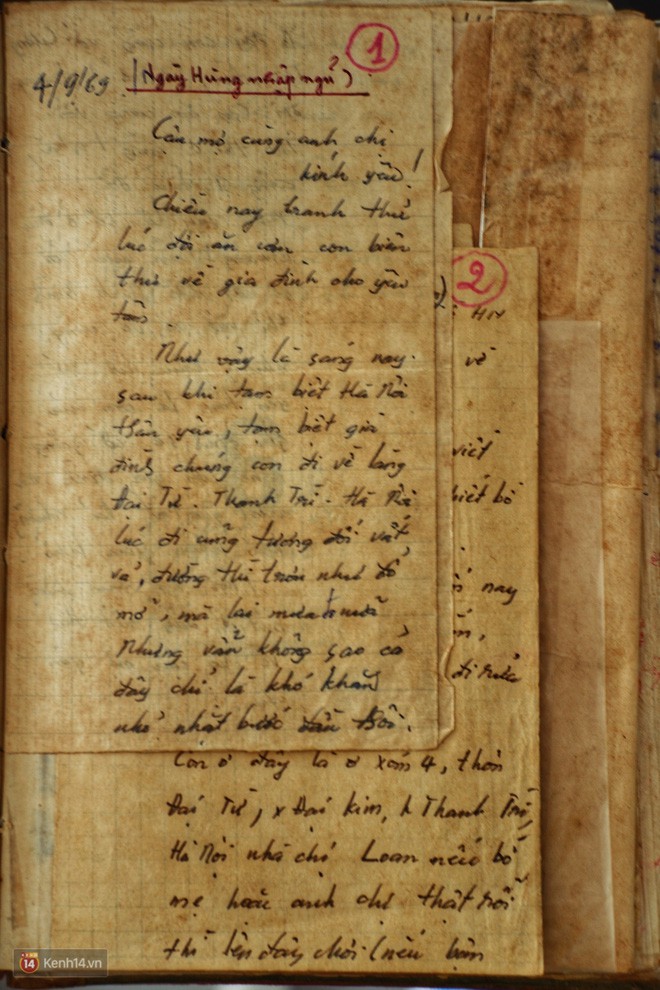 1
4/9/69 (Ngày Hùng nhập ngũ)
Cậu mợ cùng anh chị
kính yêu!
Chiều nay tranh thủ
lúc đợi ăn cơm con biên
thư về gia đình cho yên
tâm
Như vậy là sáng nay
sau khi tạm biệt Hà Nội
thân yêu, tạm biệt gia
đình chúng con đi về làng
Đại Từ. Thanh Trì. Hà Nội
lúc đi cũng tương đối vất
vả, đường thì trơn như đổ
mỡ, mà lại mưa nữa
Nhưng vẫn không sao cả
đây chỉ là khó khăn
nhỏ nhặt bước đầu thôi.
2
về
viết
biết bố
nay
đi rửa
Con ở đây là ở xóm 4, thôn
Đại Từ, x Đại Kim, h Thanh Trì,
Hà Nội nhà chị Loan nếu bố
mẹ hoặc anh chị thật rỗi
thì lên đây chơi (nếu bận
14 Kenh14.vn